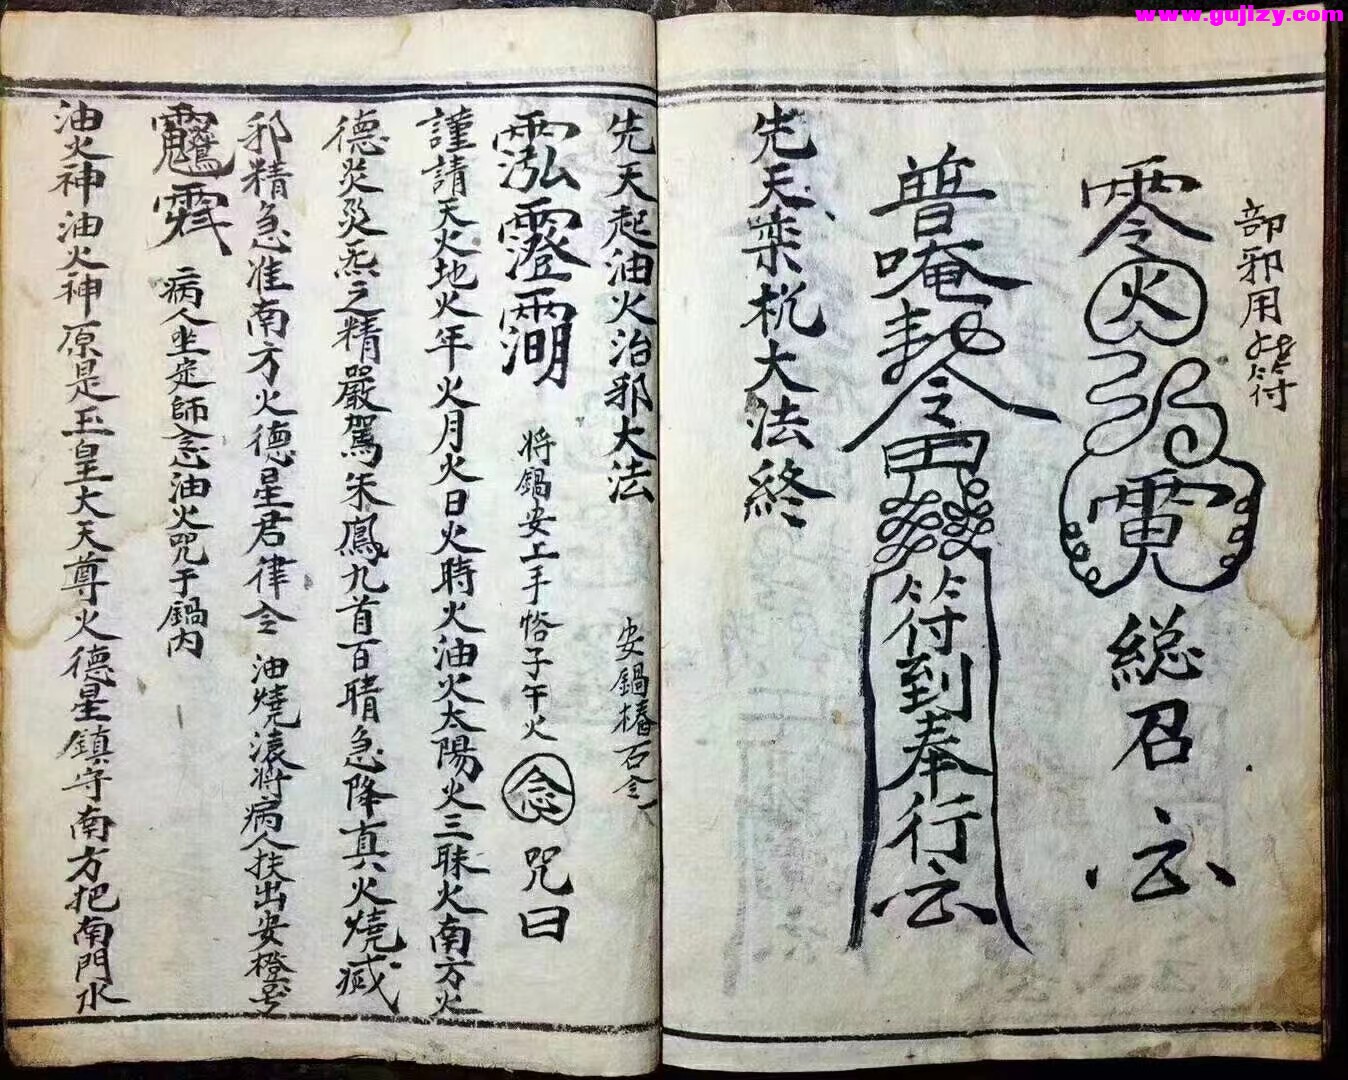 www.gujizy.com
部邪用符
零火
霓
総召 云
普唵勅令
符到奉行云
先天栾杌大法終
先天起油火治邪大法 安鍋樁石念
將鍋安上手悋子午火 念 咒曰
謹請天火地火年火月火日火時火油火太陽火三昧火南方火
德炎災炁之精嚴駕朱鳳九首百睛急降真火燒滅
邪精急准南方火德星君律令 油燒滾將病人扶出安橙
病人坐定師念油火咒于鍋內
油火神油火神原是玉皇大天尊火德星鎮守南方把南門水